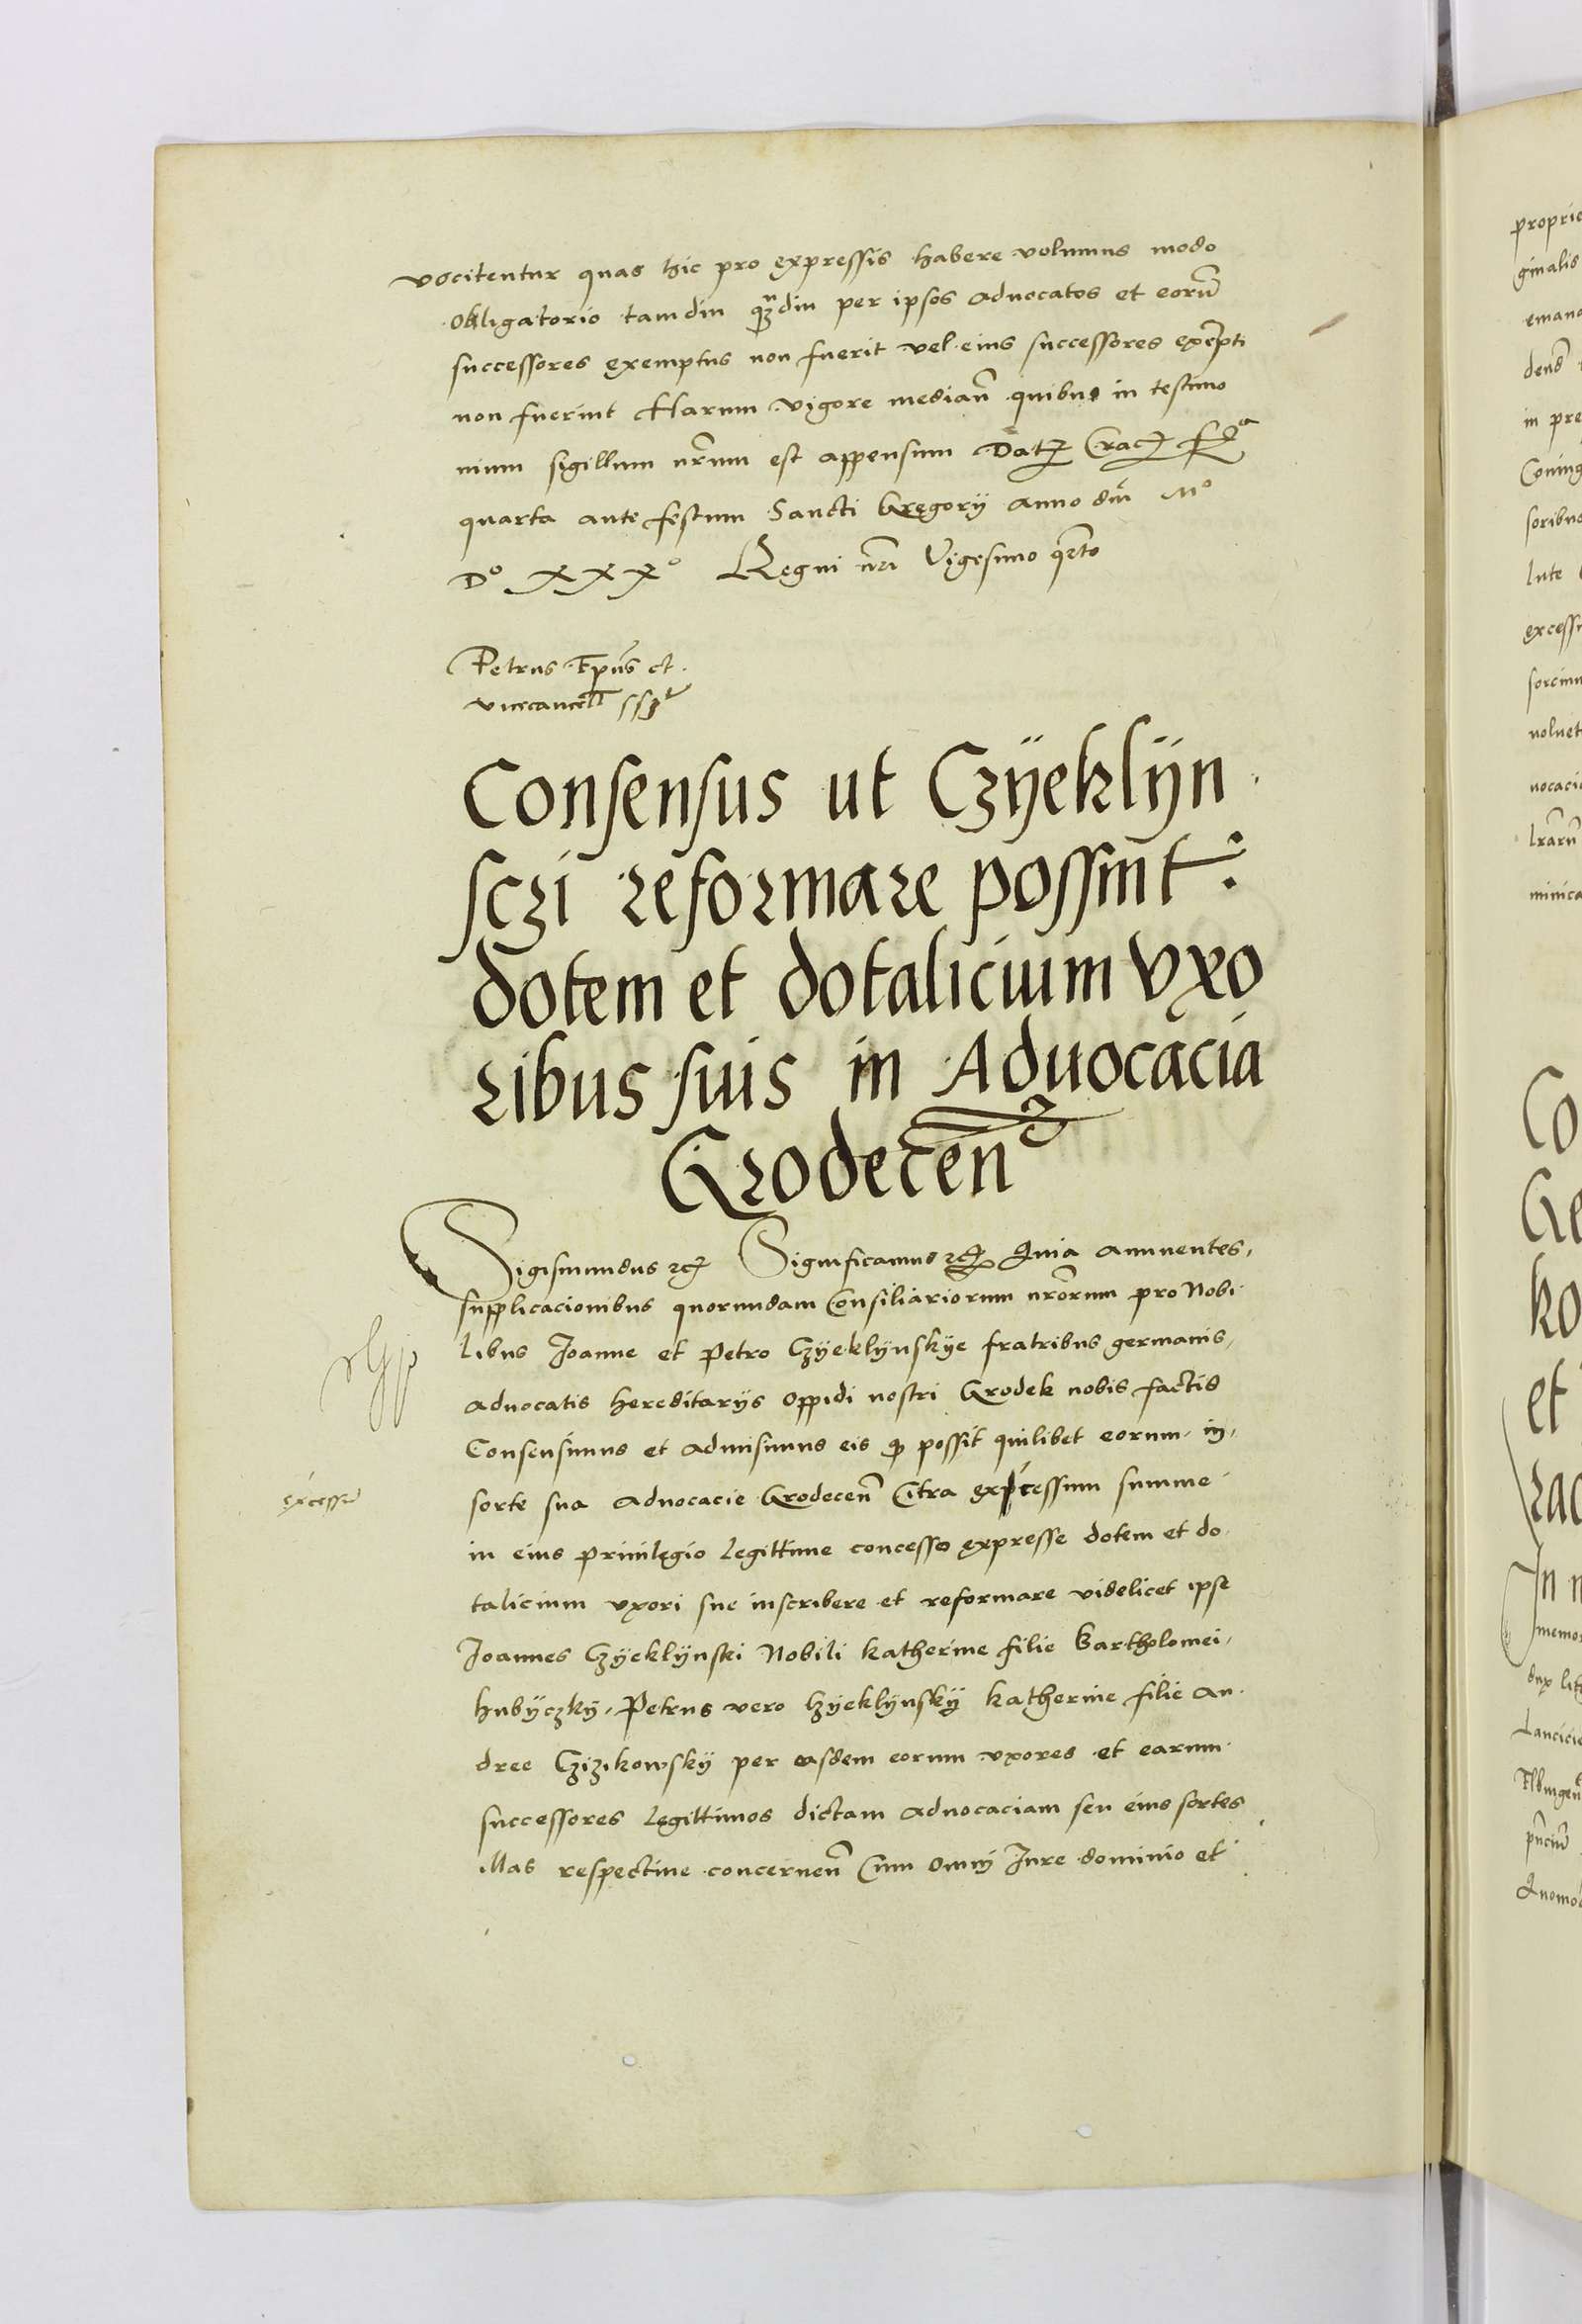 vocitentur quas hic pro expressis habere volumus modo
obligatorio tamdiu qzdiu per ipsos advocatos et eorū
successores exemptus non fuerit vel eius successores exēpti
non fuerint Harum vigore median̄ quibus in testimo
nium sigillum nr̄um est appensum Datꝫ Cracꝫ fr̄ia
quarta ante festum Sancti Gregorÿ Anno dnī Mº
Dº XXXº Regni nrī Vigesimo qrto
Petrus Ep̄us et
vicecancell̄ sszt
Consensus ut Czÿeklÿn
sczi reformare possint
dotem et dotalicium vxo
ribus suis in Aduocacia
Grodecen̄
Sigismundus rcꝫ Significamus rcꝫ Quia annuentes,
supplicacionibus quorundam Consiliariorum nrōrum pro Nobi
libus Joanne et Petro Czÿeklÿnskÿe fratribus germanis,
aduocatis hereditarÿs oppidi nostri Grodek nobis factis
Consensimus et admisimus eis qɜ possit quilibet eorum in,
excessū
sorte sua aduocacie Grodecen̄ Citra expcessum summe
in eius priuilegio legittime concesso expresse dotem et do
talicium vxori sue inscribere et reformare videlicet ipse
Joannes Czÿeklÿnski Nobili Katherine filie Bartholomei,
hubÿczkÿ, Petrus vero Czÿeklÿnskÿ Katherine filie An
dree Czizikowskÿ per easdem eorum vxores et earum
successores legittimos dictam aduocaciam seu eius sortes
illas respectiue concernen̄ Cum omnj Jure dominio et
proprie
ginalis
in pre
Coning
soribus
excess
uoluet
uocaci
minica
Co
Ge
ko
et
rac
In n
memor
Lancicie
Quomod